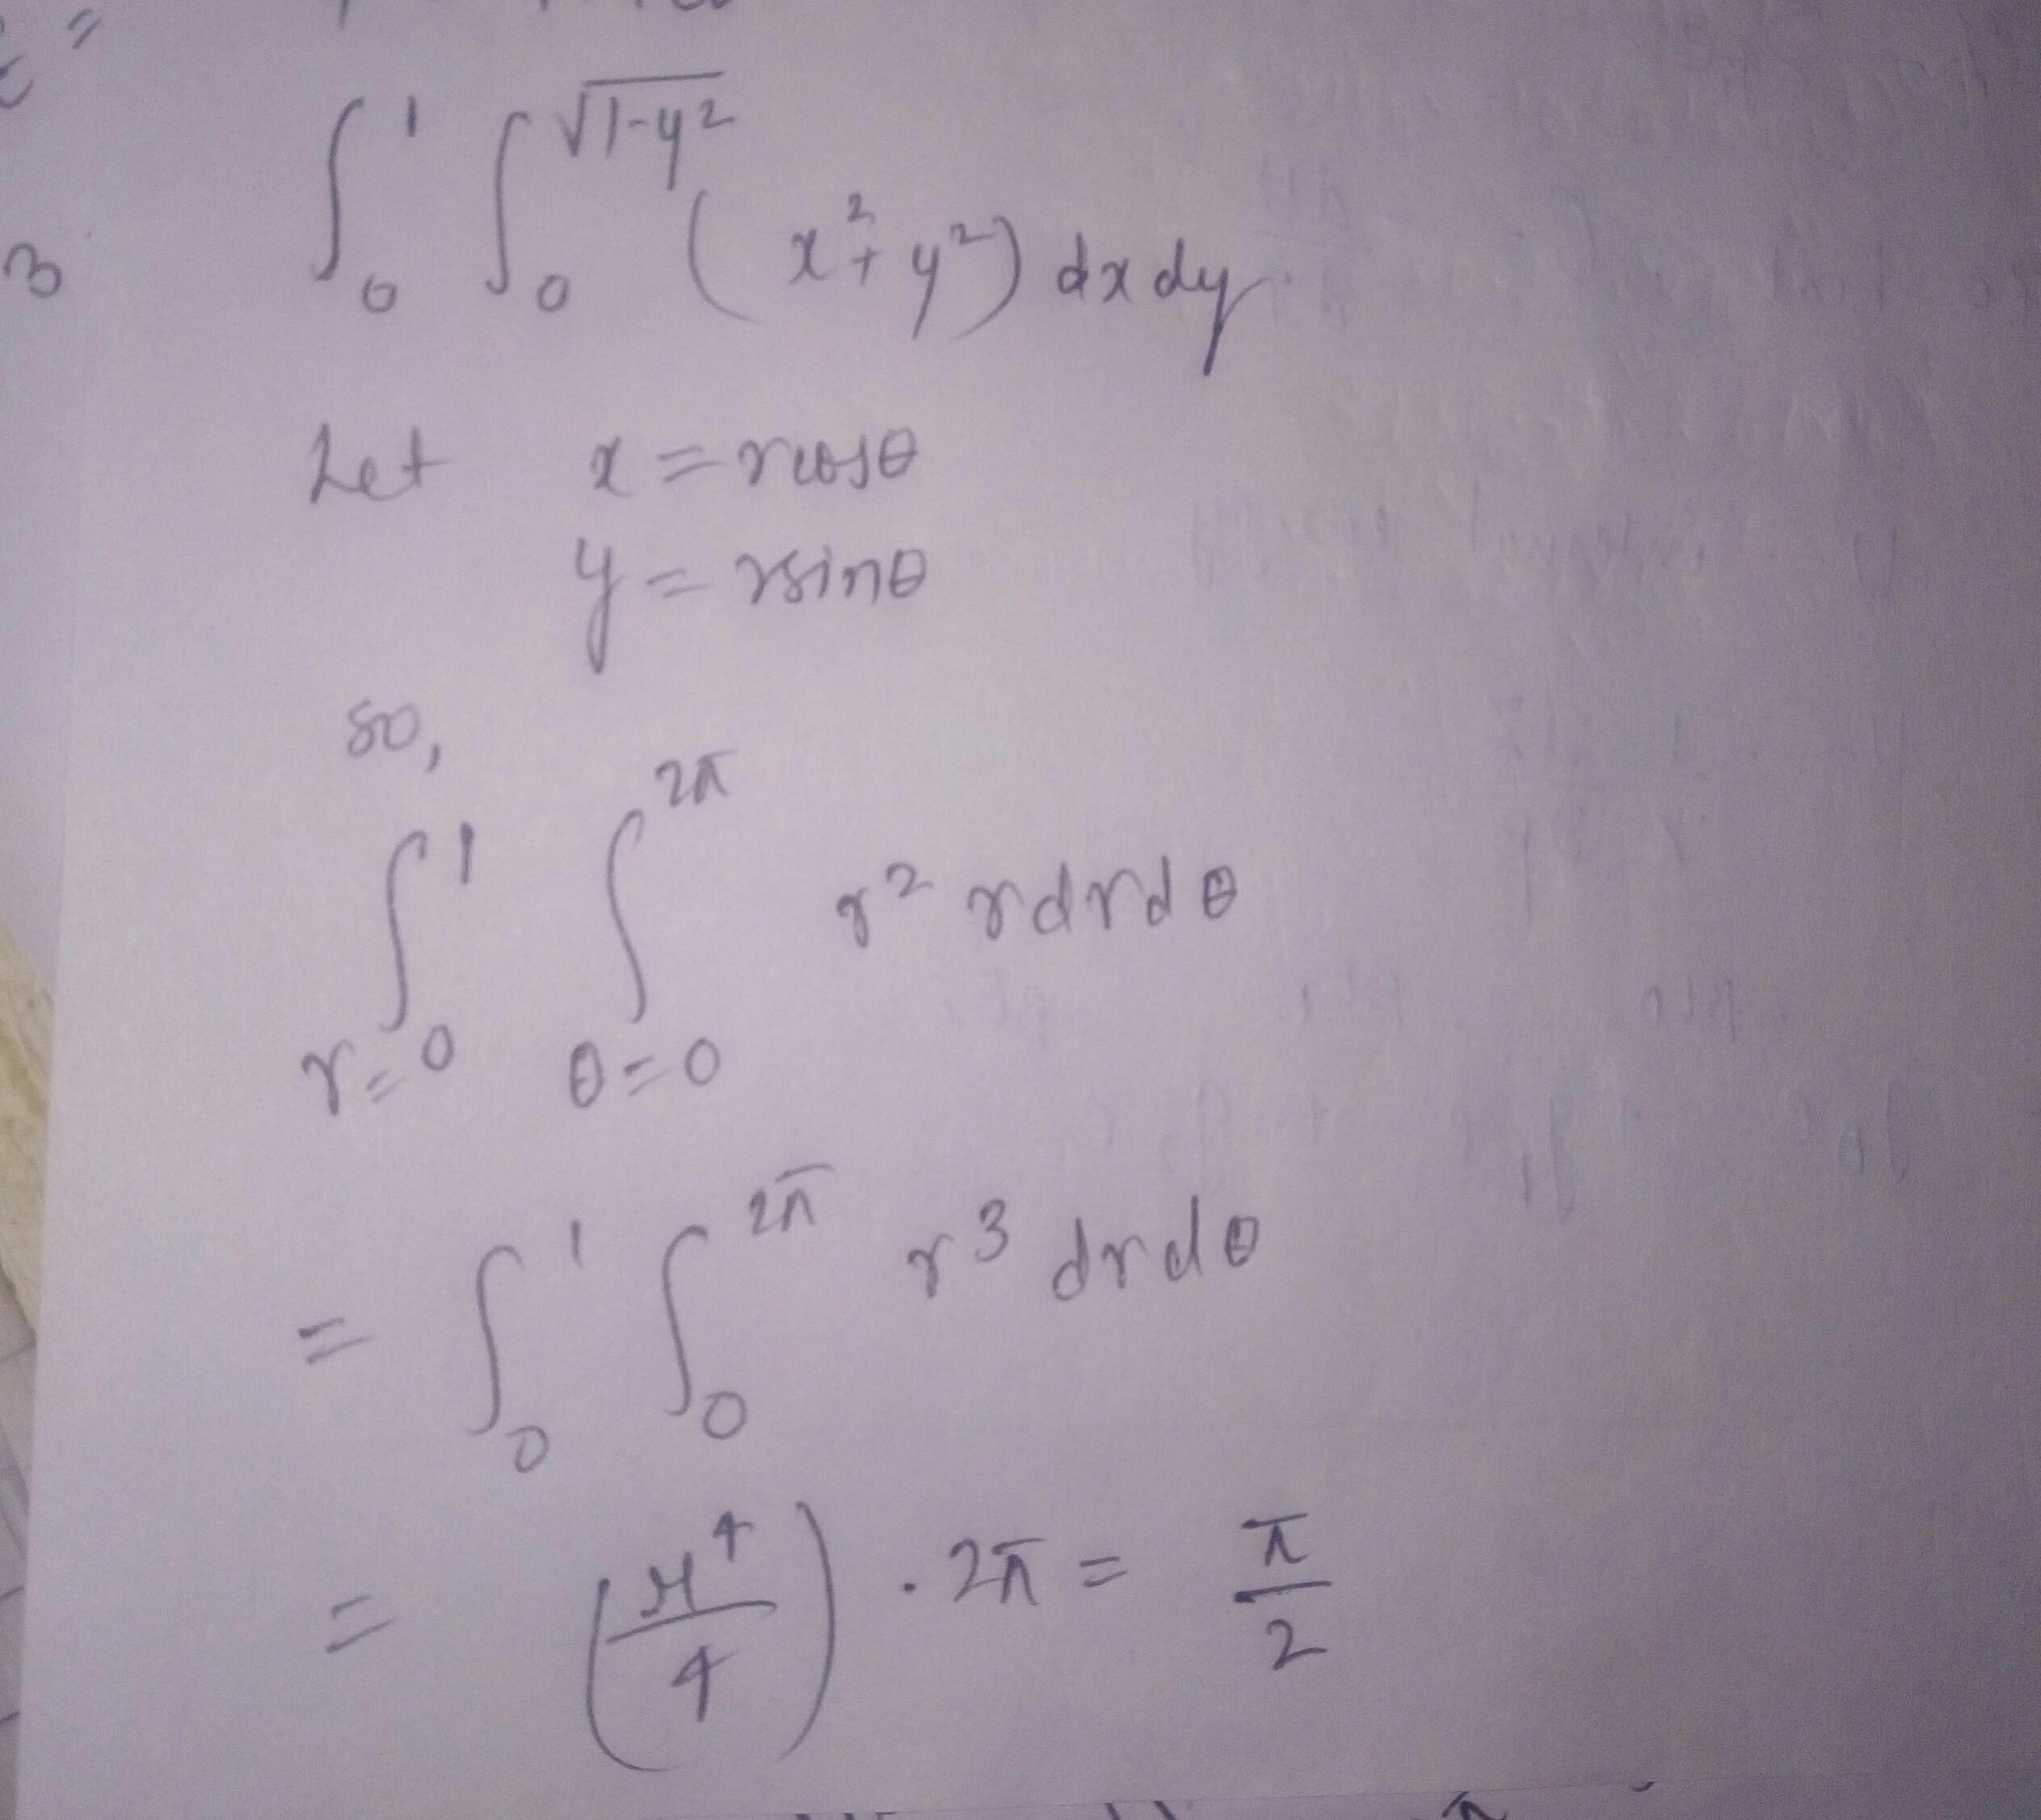 3 ∫₀¹ ∫₀^√(1-y²) (x²+y²) dx dy
Let x = rcosθ
y = rsinθ
so,
∫_{r=0}^{1} ∫_{θ=0}^{2π} r² rdrdθ
= ∫₀¹ ∫₀^{2π} r³ drdθ
= (r⁴/4) . 2π = π/2